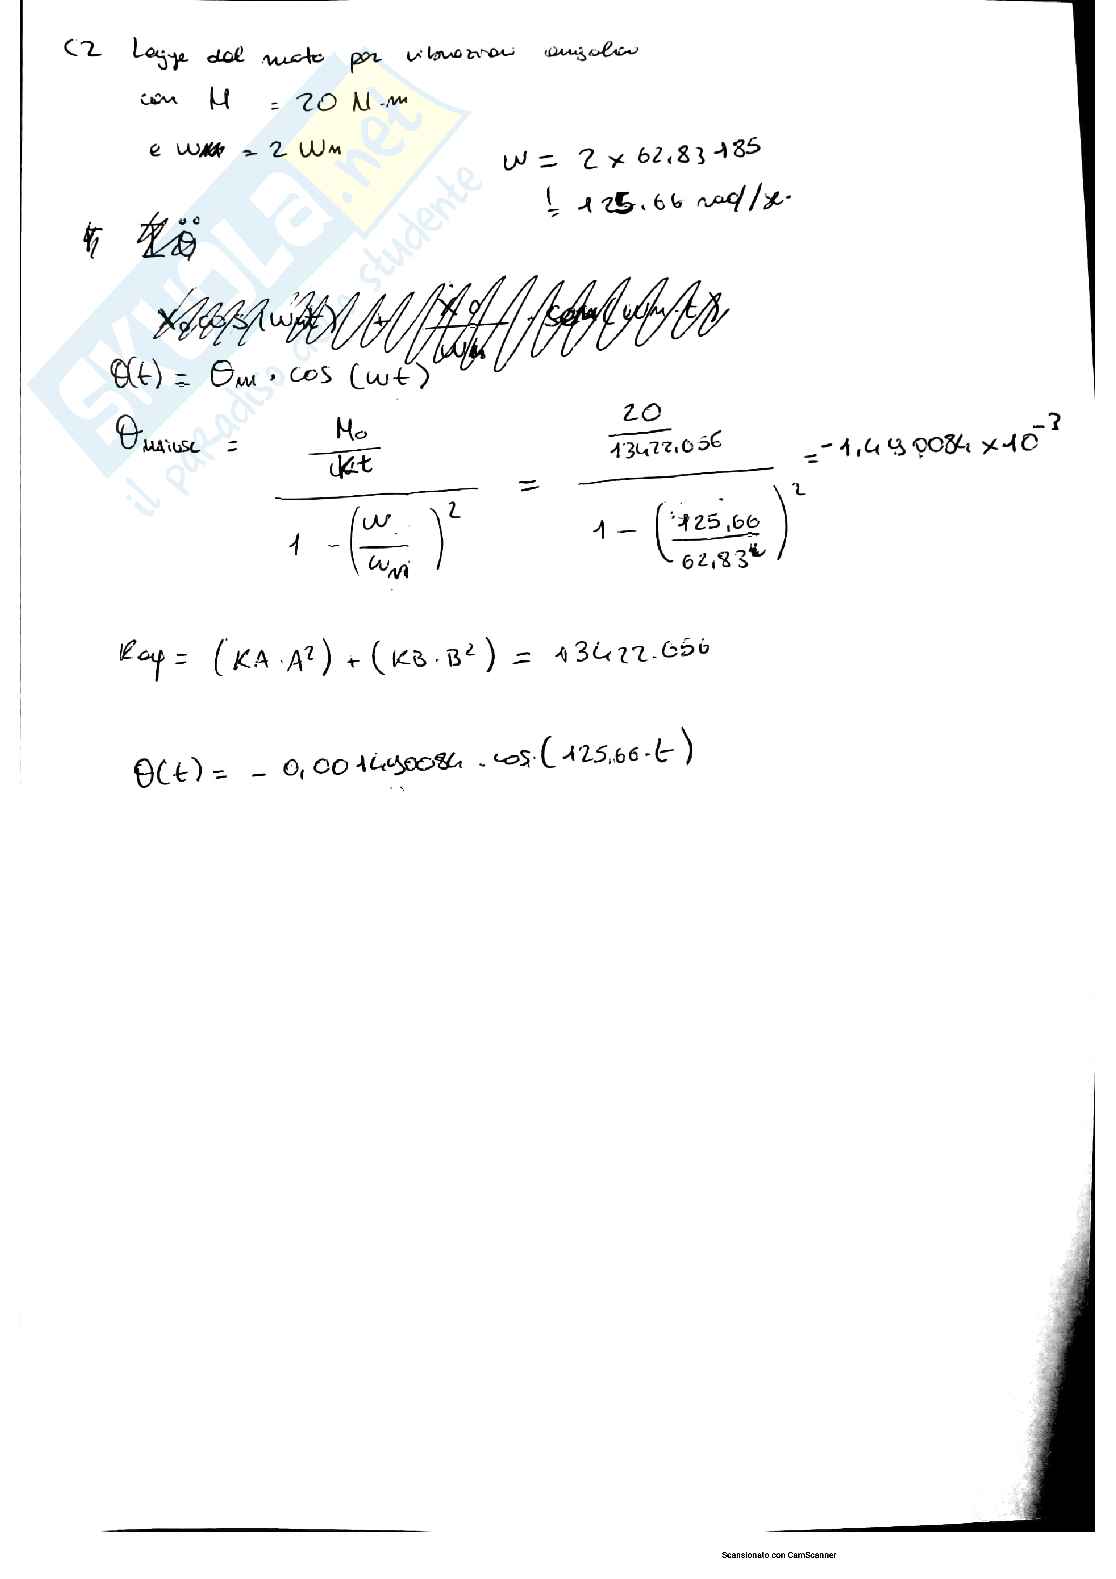 C2 Legge del moto per vibrazioni angolari
con M = 20 N·m
e ω = 2 ωn
ω = 2 × 62.83185
= 125.66 rad/s.
θ(t) = θm · cos (ωt)
θMAIUSC = (M0 / Kt) / (1 - (ω / ωn)^2) = (20 / 13422.056) / (1 - (125,66 / 62,83)^2) = -1,490084 × 10^-3
Keq = (KA · A²) + (KB · B²) = 13422.056
θ(t) = - 0,001490084 · cos (125,66 · t)
SKUOLA.net
il paradiso dello studente
Scansionato con CamScanner